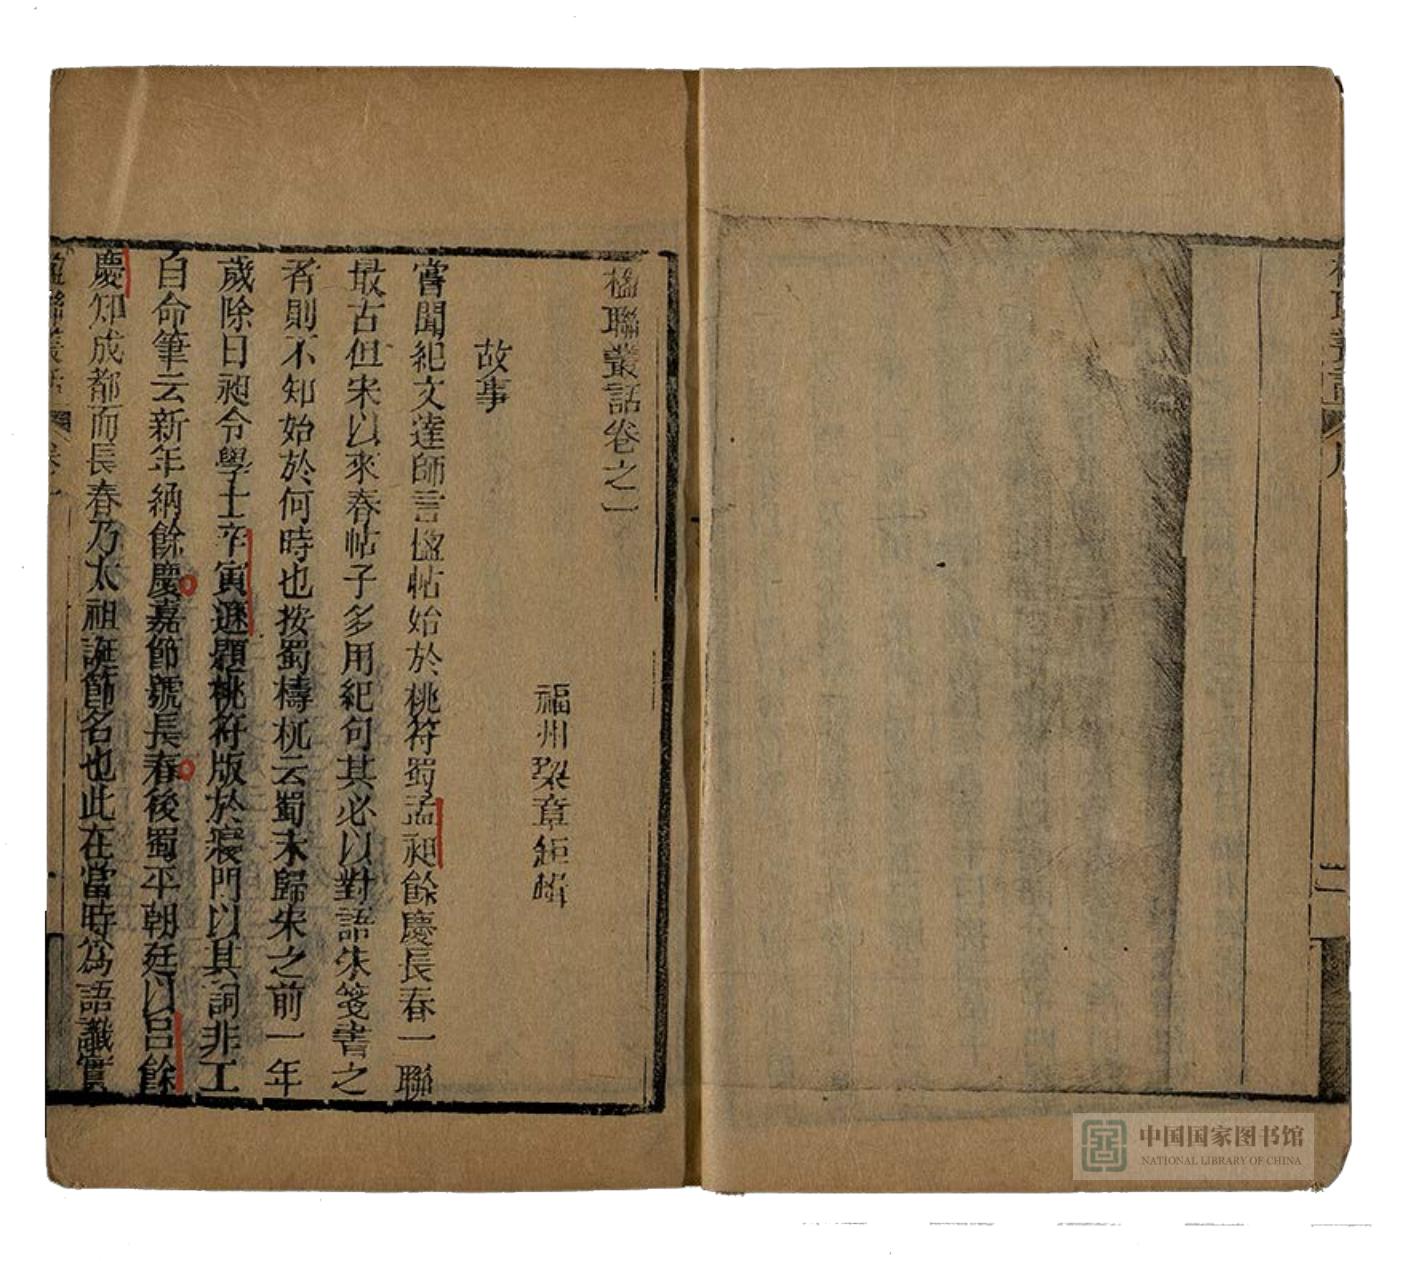 楹聯叢話卷之一
福州梁章鉅輯
故事
嘗聞紀文達師言楹帖始於桃符蜀孟昶餘慶長春一聯
最古但宋以來春帖子多用紀句其必以對語朱箋書之
者則不知始於何時也按蜀檮杌云蜀未歸宋之前一年
歲除日昶令學士辛寅遜題桃符版於寢門以其詞非工
自命筆云新年納餘慶嘉節號長春後蜀平朝廷以呂餘
慶知成都而長春乃太祖誕節名也此在當時為語讖實
楹聯叢話
卷一
中国国家图书馆
NATIONAL LIBRARY OF CHINA